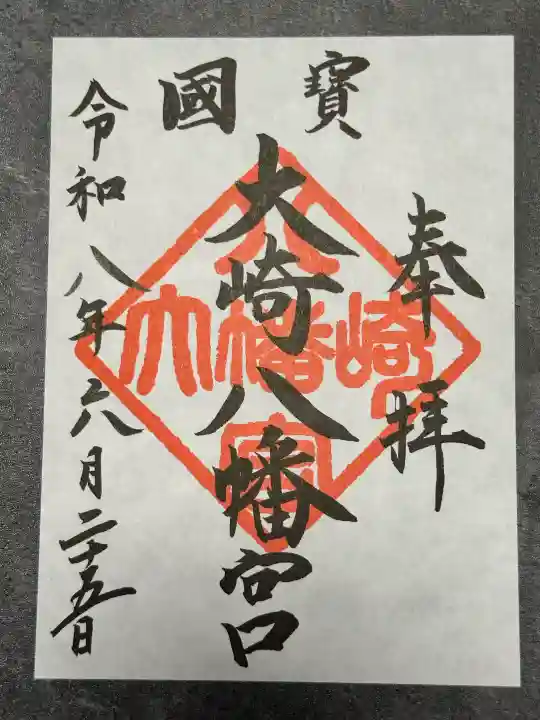 奉拝
國寳
大崎八幡宮
令和八年六月二十五日
大崎八幡宮